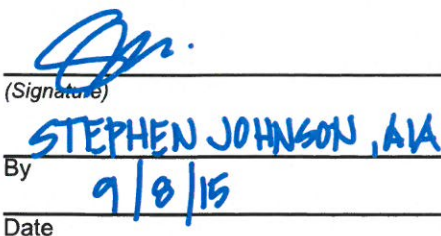 (Signature)
STEPHEN JOHNSON, AIA
By
9/8/15
Date